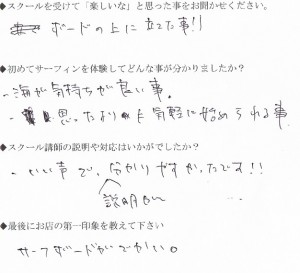 ◆スクールを受けて「楽しいな」と思った事をお聞かせください。
ボードの上に立てた事!!
◆初めてサーフィンを体験してどんな事が分かりましたか?
・海が気持ちが良い事。
・思ったより気軽に始められる事
◆スクール講師の説明や対応はいかがでしたか?
・いい声で、分かりやすかったです!!
説明が
◆最後にお店の第一印象を教えて下さい
サーフボードがでかい。